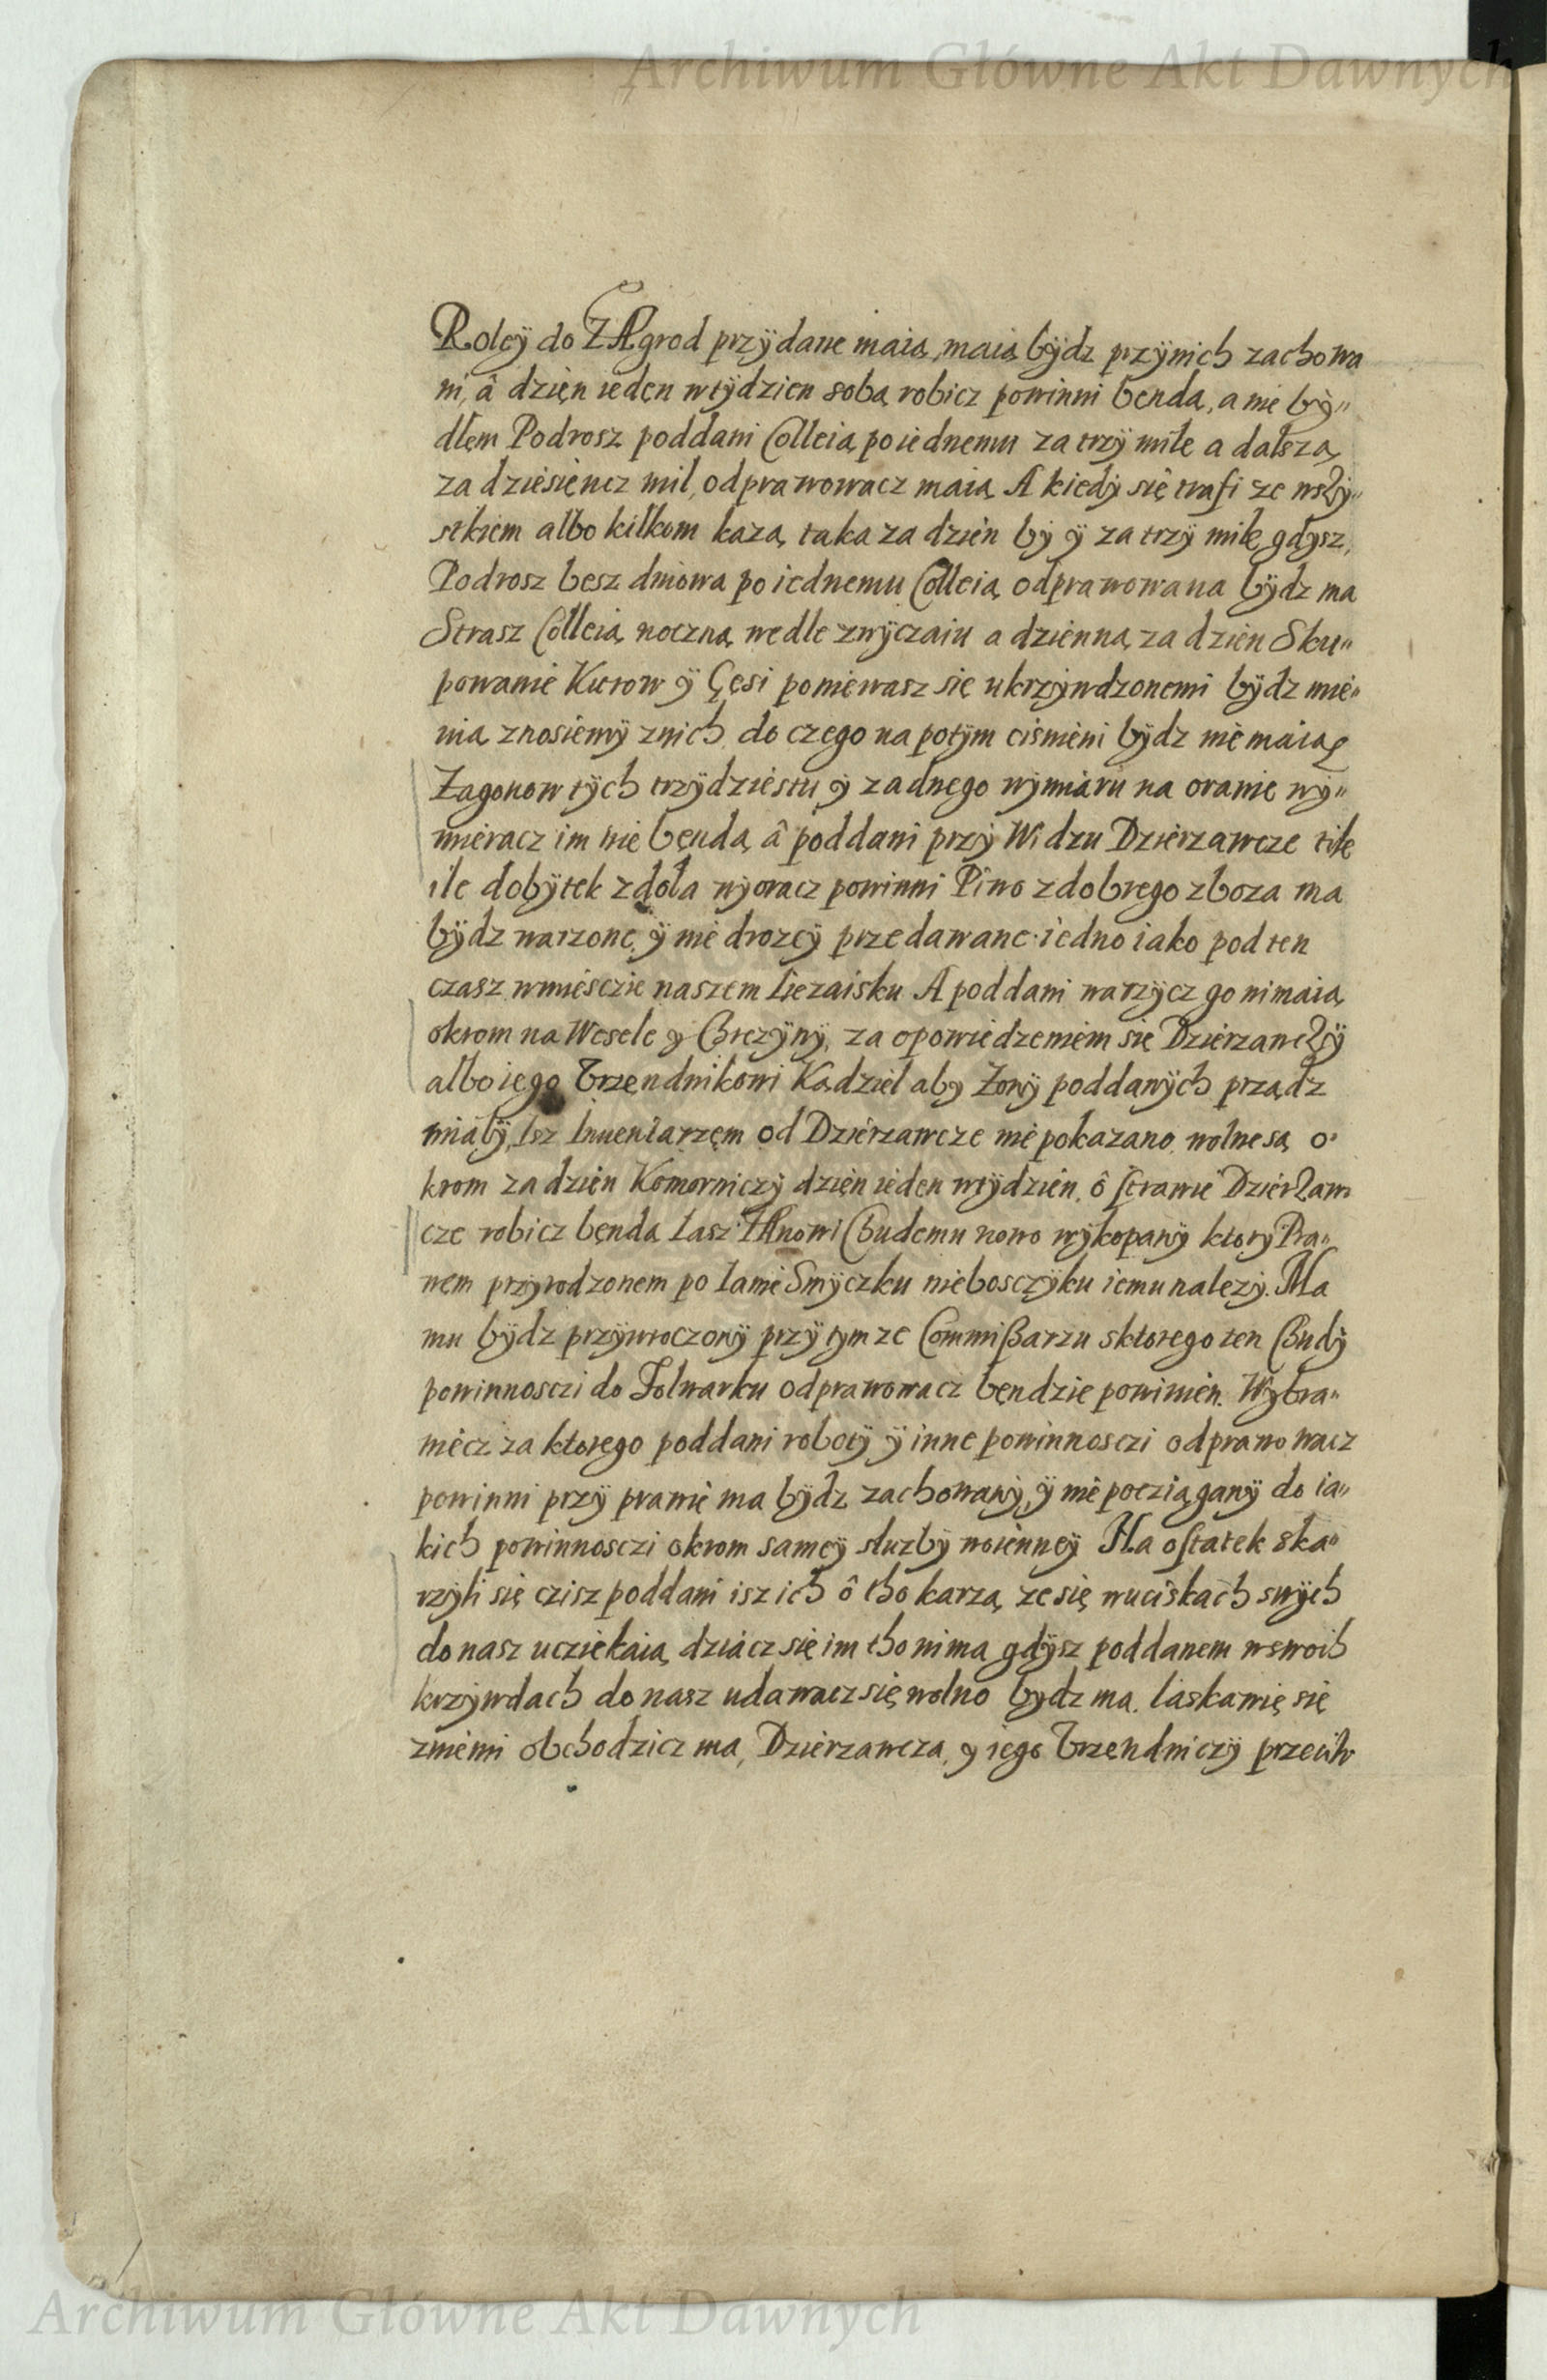 Archiwum Główne Akt Dawnych
Roley do ZAgrod przÿdane maią, maią bÿdz przÿnich zachowa
ni, â dzięn ieden wtÿdzien sobą robicz powinni bendą, a nie bÿ„
dłem Podrosz poddani Colleią poiednemu za trzÿ mile a dalszą,
za dziesiencz mil, odprawowacz maią A kiedÿ się trafi ze wszÿ„
stkiem albo kilkom każą, taka za dzien bÿ ÿ za trzÿ mile, gdÿsz,
Podrosz besz dniowa po iednemu Colleią odprawowana bÿdz ma
Strasz Colleią noczną wedle zwÿczaiu a dzienną za dzien Sku„
powanie Kurow ÿ Gęsi poniewasz się ukrzÿwdzonemi bÿdz mie„
nią znosiemÿ znich do czego na potÿm cisnieni bÿdz nie maią
Zagonow tÿch trzÿdziestu ÿ zadnego wÿmiaru na oranie wÿ„
mieracz im nie będą â poddani przÿ Widzu Dzierzawcze tile
ile dobÿtek zdoła wÿoracz powinni Piwo z dobrego zboza ma
bÿdz warzone ÿ nie drozeÿ przedawane iedno iako pod ten
czasz wmiesczie naszem Liezaisku A poddani warzÿcz go nimaią
okrom na Wesele ÿ Chrezÿnÿ, za opowiedzeniem się Dzierzawczÿ
albo iego Urzendnikowi Kądziel abÿ Zonÿ poddanÿch prządz
miałÿ, Isz Inuentarzęm od Dzierzawcze nie pokazano, wolne są o„
krom za dzien Komorniczÿ dzięn ieden wtÿdzien, ô strawie Dzierzaw
cze robicz będą Łasz IAnowi Chudemu nowo wÿkopanÿ ktorÿ Pra„
wem przÿrodzonem po Janie Smÿczku nieboszczÿku iemu nalezÿ. Ma
mu bÿdz przÿwroczonÿ przÿ tÿm ze Commißarzu sktorego ten Chudÿ
powinnosczi do Folwarku odprawowacz bendzie powinien. Wÿbra„
niecz za ktorego poddani robotÿ ÿ inne powinnosczi odprawowacz
powinni przÿ prawie ma bÿdz zachowanÿ, ÿ nie pocziąganÿ do ia„
kich powinnosczi okrom sameÿ służbÿ woienneÿ Na ostatek ska„
rzÿli się czisz poddani isz ich ô tho karzą, ze się wuciskach swÿch
do nasz ucziekaią, dziacz się im tho nima gdÿsz poddanem wswoich
krzÿwdach do nasz udawacz się wolno bydz ma. Łaskawię się
zniemi obchodzicz ma, Dzierzawcza, ÿ iego Urzendniczÿ przeciw
Archiwum Główne Akt Dawnych